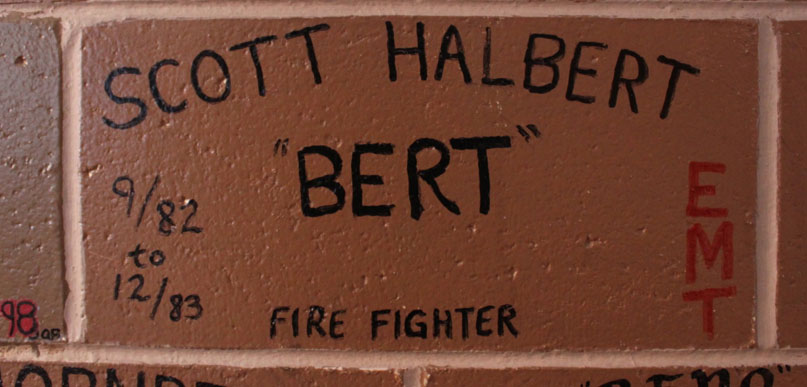 SCOTT HALBERT
"BERT"
9/82
to
12/83
EMT
FIRE FIGHTER
98